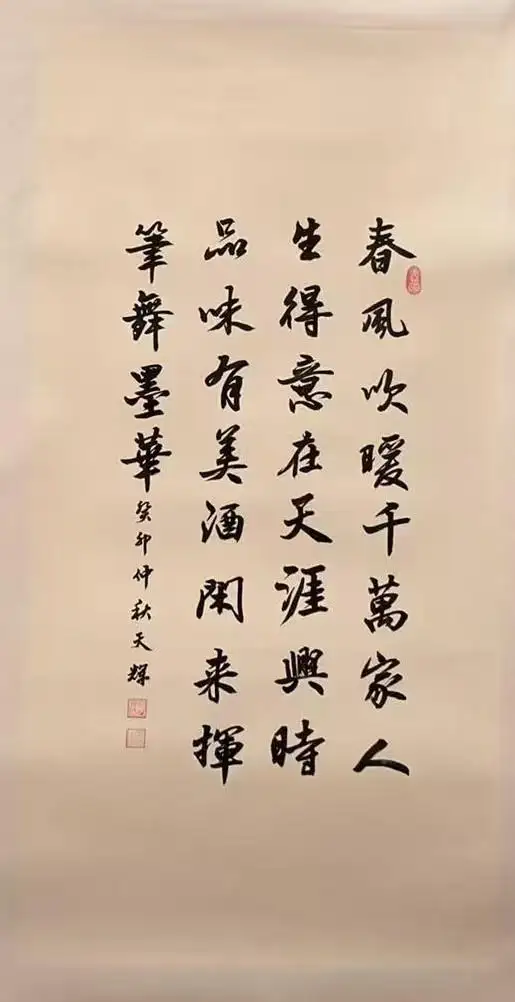 春風吹暖千萬家人
生得意在天涯興時
品味有美酒閑来揮
筆舞墨華
癸卯仲秋天輝